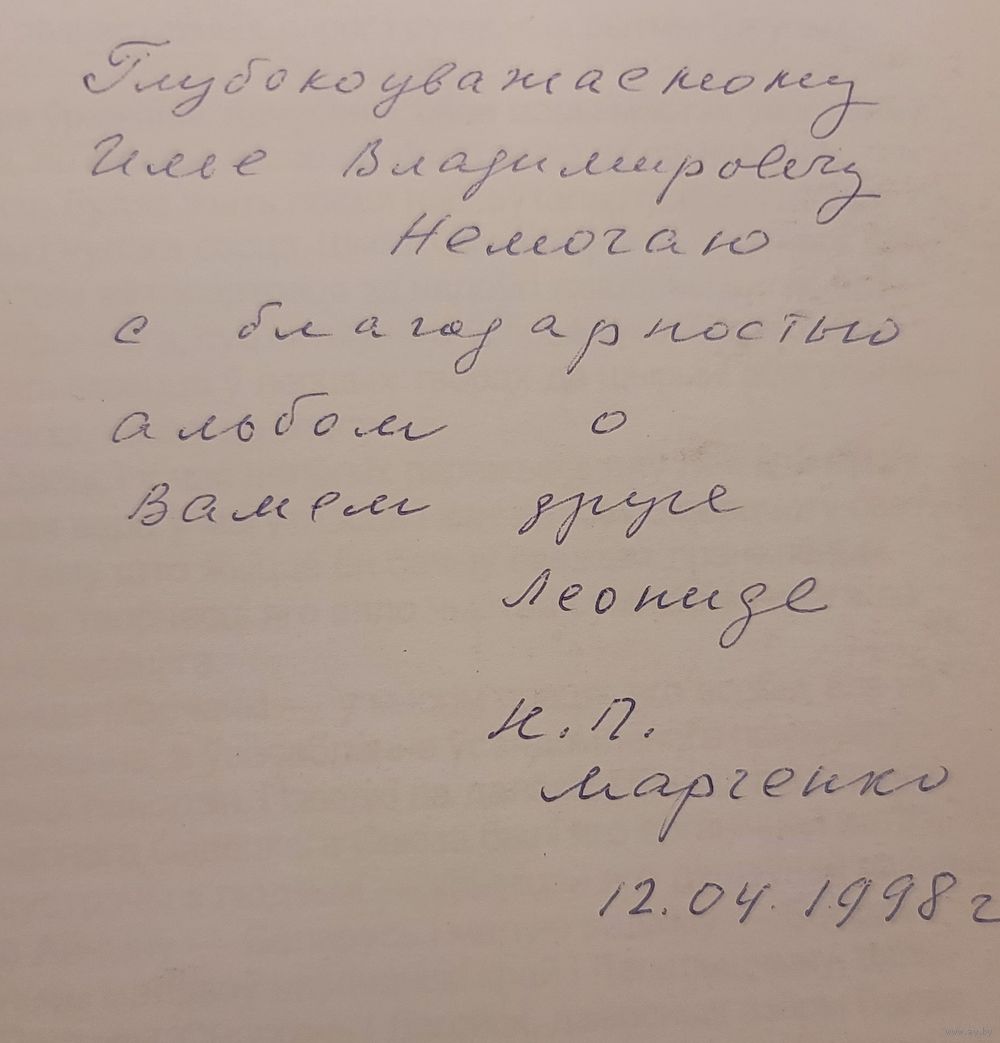 Глубокоуважаемому
Илье Владимировичу
Немогаю
с благодарностью
альбом о
Вашем друге
Леониде
Н. П.
Марченко
12.04.1998 г
www.ay.by